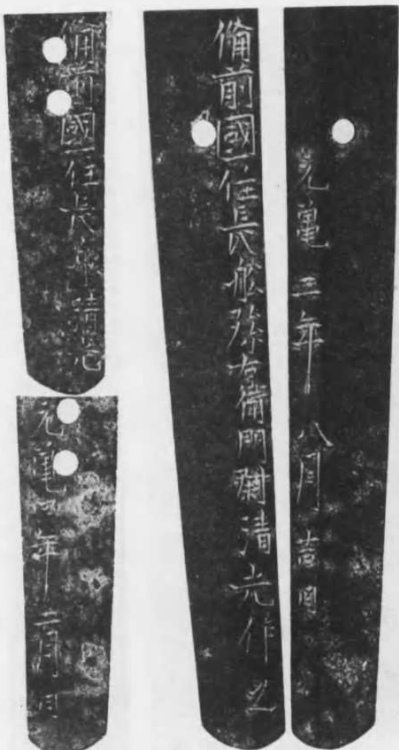 備前國住長船清光
元亀四年二月日
備前國住長船孫右衛門尉清光作之
元亀三年八月吉日